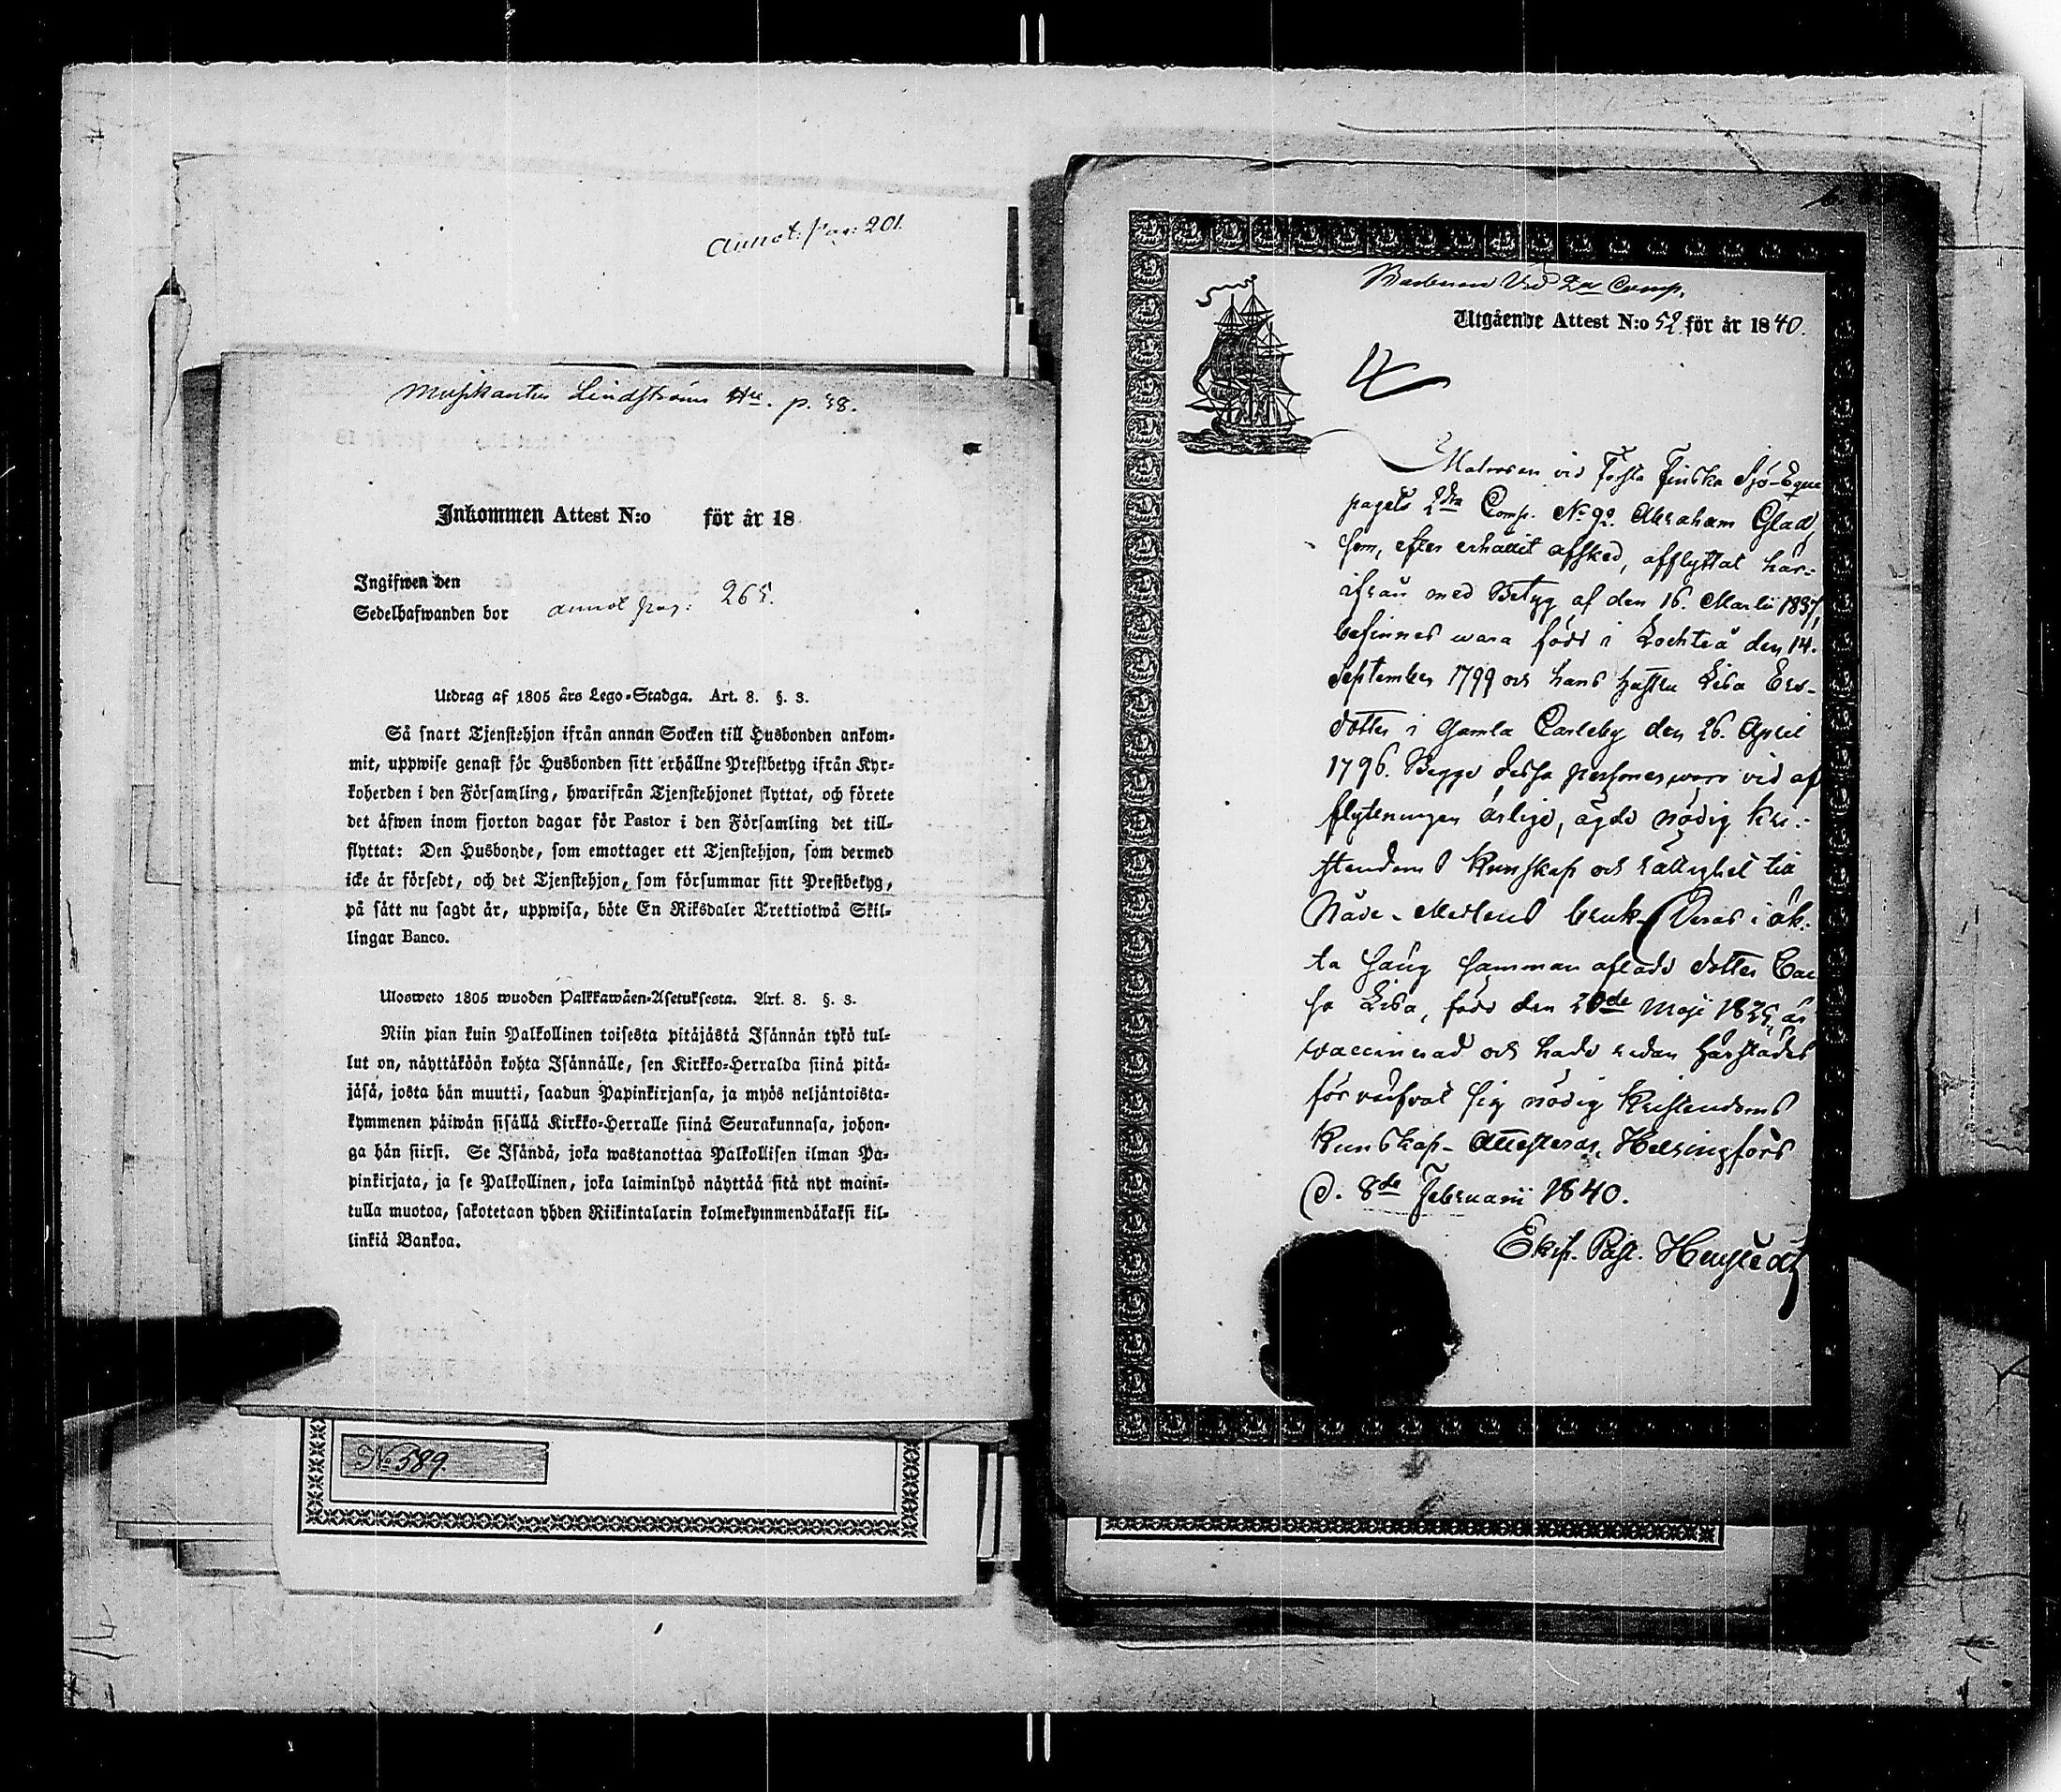 Annot: pag: 201.
Musikanten Lindströms p. 38.
Inkommen Attest N:o för år 18
Ingifwen den
Sedelhafwanden bor annot pag: 265.
Utdrag af 1805 års Lego-Stadga. Art. 8. §. 3.
Så snart Tjenstehjon ifrån annan Socken till Husbonden ankom-
mit, uppwise genast för Husbonden sitt erhållne Prestbetyg ifrån Kyr-
koherden i den Församling, hwarifrån Tjenstehjonet flyttat, och förete
det äfwen inom fjorton dagar för Pastor i den Församling det till-
flyttat: Den Husbonde, som emottager ett Tjenstehjon, som dermed
icke är försedt, och det Tjenstehjon, som försummar sitt Prestbetyg,
på sätt nu sagdt är, uppwisa, böte En Riksdaler Trettiotwå Skil-
lingar Banco.
Ulosweto 1805 wuoden Palkkawäen-Asetuksesta. Art. 8. §. 3.
Niin pian kuin Palkollinen toisesta pitäjästä Isännän tykö tul-
lut on, näyttäköön kohta Isännälle, sen Kirkko-Herralda siinä pitä-
jäsä, josta hän muutti, saadun Papinkirjansa, ja myös neljäntoista-
kymmenen päiwän sisällä Kirkko-Herralle siinä Seurakunnasa, johon-
ga hän siirsi. Se Isändä, joka wastanottaa Palkollisen ilman Pa-
pinkirjata, ja se Palkollinen, joka laiminlyö näyttää sitä nyt maini-
tulla muotoa, sakotetaan yhden Riikintalarin kolmekymmendäkaksi kil-
linkiä Bankoa.
No 389.
Vid 2a Comp.
Utgående Attest N:o 52 för år 1840.
Matrosen vid Första Finska Sjö-Eqvi
pagets 2dra Comp. No 92. Abraham Glad,
som, efter erhållit afsked, afflyttat här-
ifrån med Betyg af den 16. Martii 1837,
befinnes wara född i Lochteå den 14.
September 1799 och hans hustru Lisa Ers-
dotter i Gamla Carleby den 26. April
1796. Begge dessa personer woro vid af
flyttningen ärlige, ägde nödig kri-
stendoms kunskap och rättighet till
Nåde-Medlens bruk. Deras i äk-
ta säng samman aflade dotter Cai
sa Lisa, född den 20de Maji 1825, är
vaccinerad och hade redan härstädes
förvärfvat sig nödig kristendoms
kunskap. Attesteras, Helsingfors
d. 8de Februarii 1840.